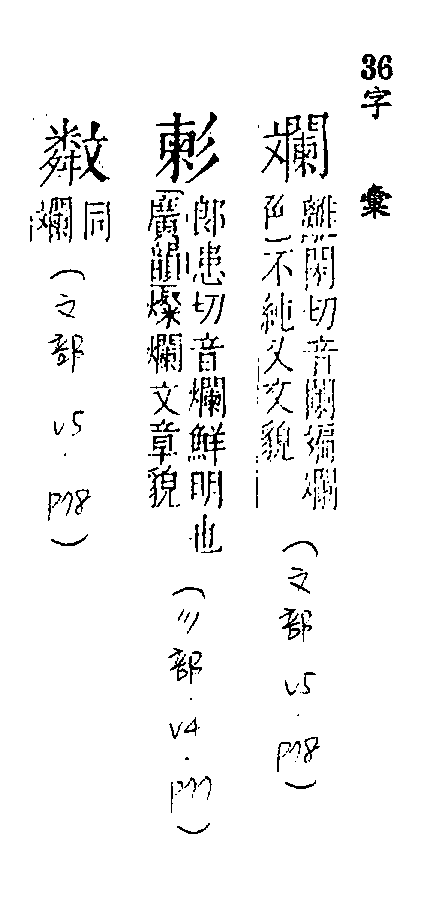 36字彙
斕
離閑切音闌斒斕
色不純又文貌
(文部 v5.p78)
郎患切音爛鮮明也
廣韻燦爛文章貌
(彡部.v4.p77)
斴
同
斕
(文部 v5.p78)